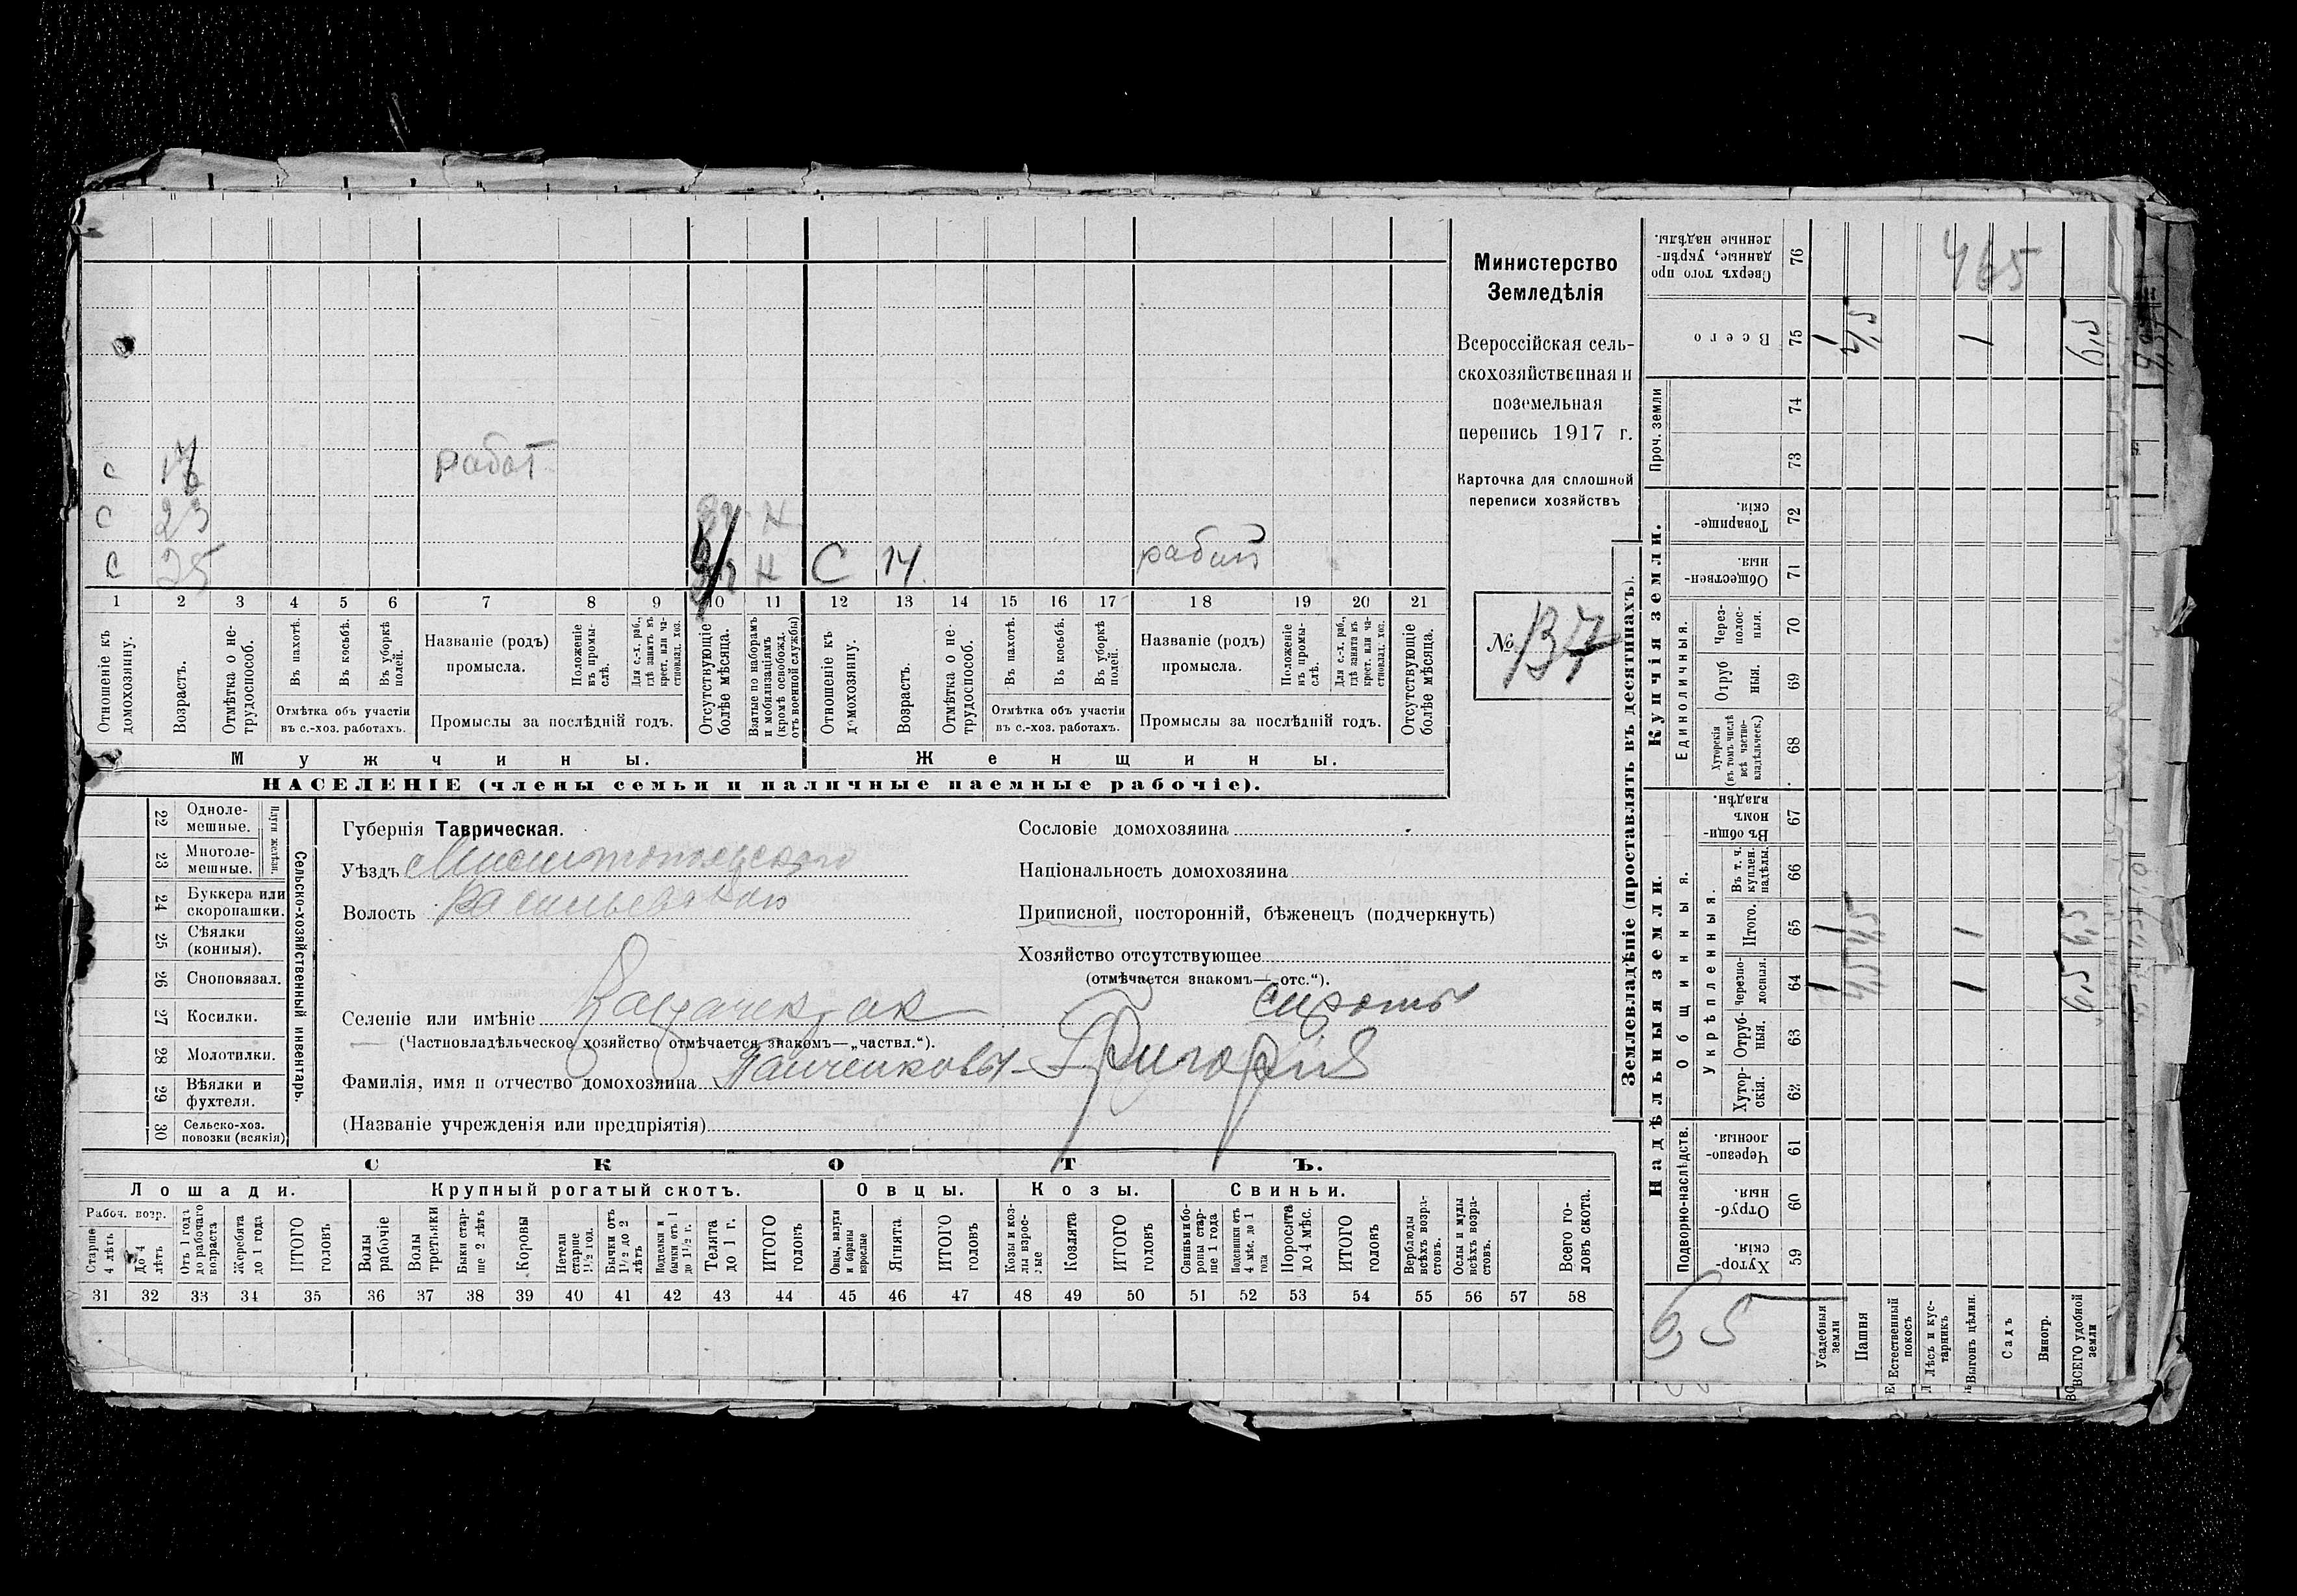 465
с 17 работ
с 23 н
с 25 н с 14 работ
1 2 3 4 5 6 7 8 9 10 11 12 13 14 15 16 17 18 19 20 21
Отношеніе къ домохозяину.
Возрастъ.
Отмѣтка о нетрудоспособ.
Въ пахотѣ.
Въ косьбѣ.
Въ уборкѣ полей.
Отмѣтка объ участіи въ с.-хоз. работахъ.
Названіе (родъ) промысла.
Положеніе въ промыслѣ.
Для с.-х. раб., гдѣ занятъ въ крест. или частновлад. хоз.
Промыслы за послѣдній годъ.
Отсутствующіе болѣе мѣсяца.
Взятые по наборамъ и мобилизаціямъ (кромѣ освобожд. отъ военной службы)
Отношеніе къ домохозяину.
Возрастъ.
Отмѣтка о нетрудоспособ.
Въ пахотѣ.
Въ косьбѣ.
Въ уборкѣ полей.
Отмѣтка объ участіи въ с.-хоз. работахъ.
Названіе (родъ) промысла.
Положеніе въ промыслѣ.
Для с.-х. раб., гдѣ занята въ крест. или частновлад. хоз.
Промыслы за послѣдній годъ.
Отсутствующіе болѣе мѣсяца.
Мужчины. Женщины.
НАСЕЛЕНІЕ (члены семьи и наличные наемные рабочіе).
Министерство
Земледѣлія
Всероссійская сель-
скохозяйственная и
поземельная
перепись 1917 г.
Карточка для сплошной
переписи хозяйствъ
№ 137
Сельско-хозяйственный инвентарь.
Плуги желѣзн.
22 Одноле-
мешные.
23 Многоле-
мешные.
24 Буккера или
скоропашки.
25 Сѣялки
(конныя).
26 Сноповязал.
27 Косилки.
28 Молотилки.
29 Вѣялки и
фухтеля.
30 Сельско-хоз.
повозки (всякія)
Губернія Таврическая.
Уѣздъ Мелитопольскаго
Волость Васильевской
Селеніе или имѣніе
(Частновладѣльческое хозяйство отмѣчается знакомъ—„частвл.“).
Фамилія, имя и отчество домохозяина Панченковы Григорія
(Названіе учрежденія или предпріятія)
Сословіе домохозяина
Національность домохозяина
Приписной, посторонній, бѣженецъ (подчеркнуть)
Хозяйство отсутствующее
(отмѣчается знакомъ—„отс.“).
сироты
СКОТЪ.
Лошади. Крупный рогатый скотъ. Овцы. Козы. Свиньи.
Рабоч. возр.
Старше 4 лѣтъ
До 4 лѣтъ
Отъ 1 года до рабочаго возраста
Жеребята до 1 года
ИТОГО головъ
Волы рабочіе
Волы третьяки
Быки старше 2 лѣтъ
Коровы
Нетели старше 1½ год.
Бычки отъ 1½ до 2 лѣтъ
Подтелки и бычки отъ 1 до 1½ г.
Телята до 1 г.
ИТОГО головъ
Овцы, валухи и бараны взрослые
Ягнята
ИТОГО головъ
Козы и козлы взрослые
Козлята
ИТОГО головъ
Свиньи и боровы старше 1 года
Подсвинки отъ 4 мѣс. до 1 года
Поросята до 4 мѣс.
ИТОГО головъ
Верблюды всѣхъ возрастовъ.
Ослы и мулы всѣхъ возрастовъ.
Всего головъ скота.
31 32 33 34 35 36 37 38 39 40 41 42 43 44 45 46 47 48 49 50 51 52 53 54 55 56 57 58
Землевладѣніе (проставлять въ десятинахъ).
Надѣльныя земли.
Купчія земли.
Проч. земли
Подворно-наслѣдств.
Общинныя.
Укрѣпленныя.
Единоличныя.
Сверхъ того проданные, укрѣпленные надѣлы. 76
Всего 75 1 4,5 1 6,5
74
73
Товарищескія. 72
Общественныя. 71
Черезполосныя. 70
Отрубныя. 69
Хуторскія (въ томъ числѣ всѣ частновладѣльческ.) 68
Въ общинномъ владѣн. 67
Въ т. ч. куплен. надѣлы. 66
Итого. 65 1 4,5 1 6,5
Черезполосныя. 64 1 4,5 1 6,5
Отрубныя. 63
Хуторскія. 62
Черезполосныя. 61
Отрубныя. 60
Хуторскія. 59
65
Усадебныя земли
Пашня
Естественный покосъ
Лѣсъ и кустарникъ
Выгонъ цѣлин.
Садъ
Виногр.
ВСЕГО удобной земли